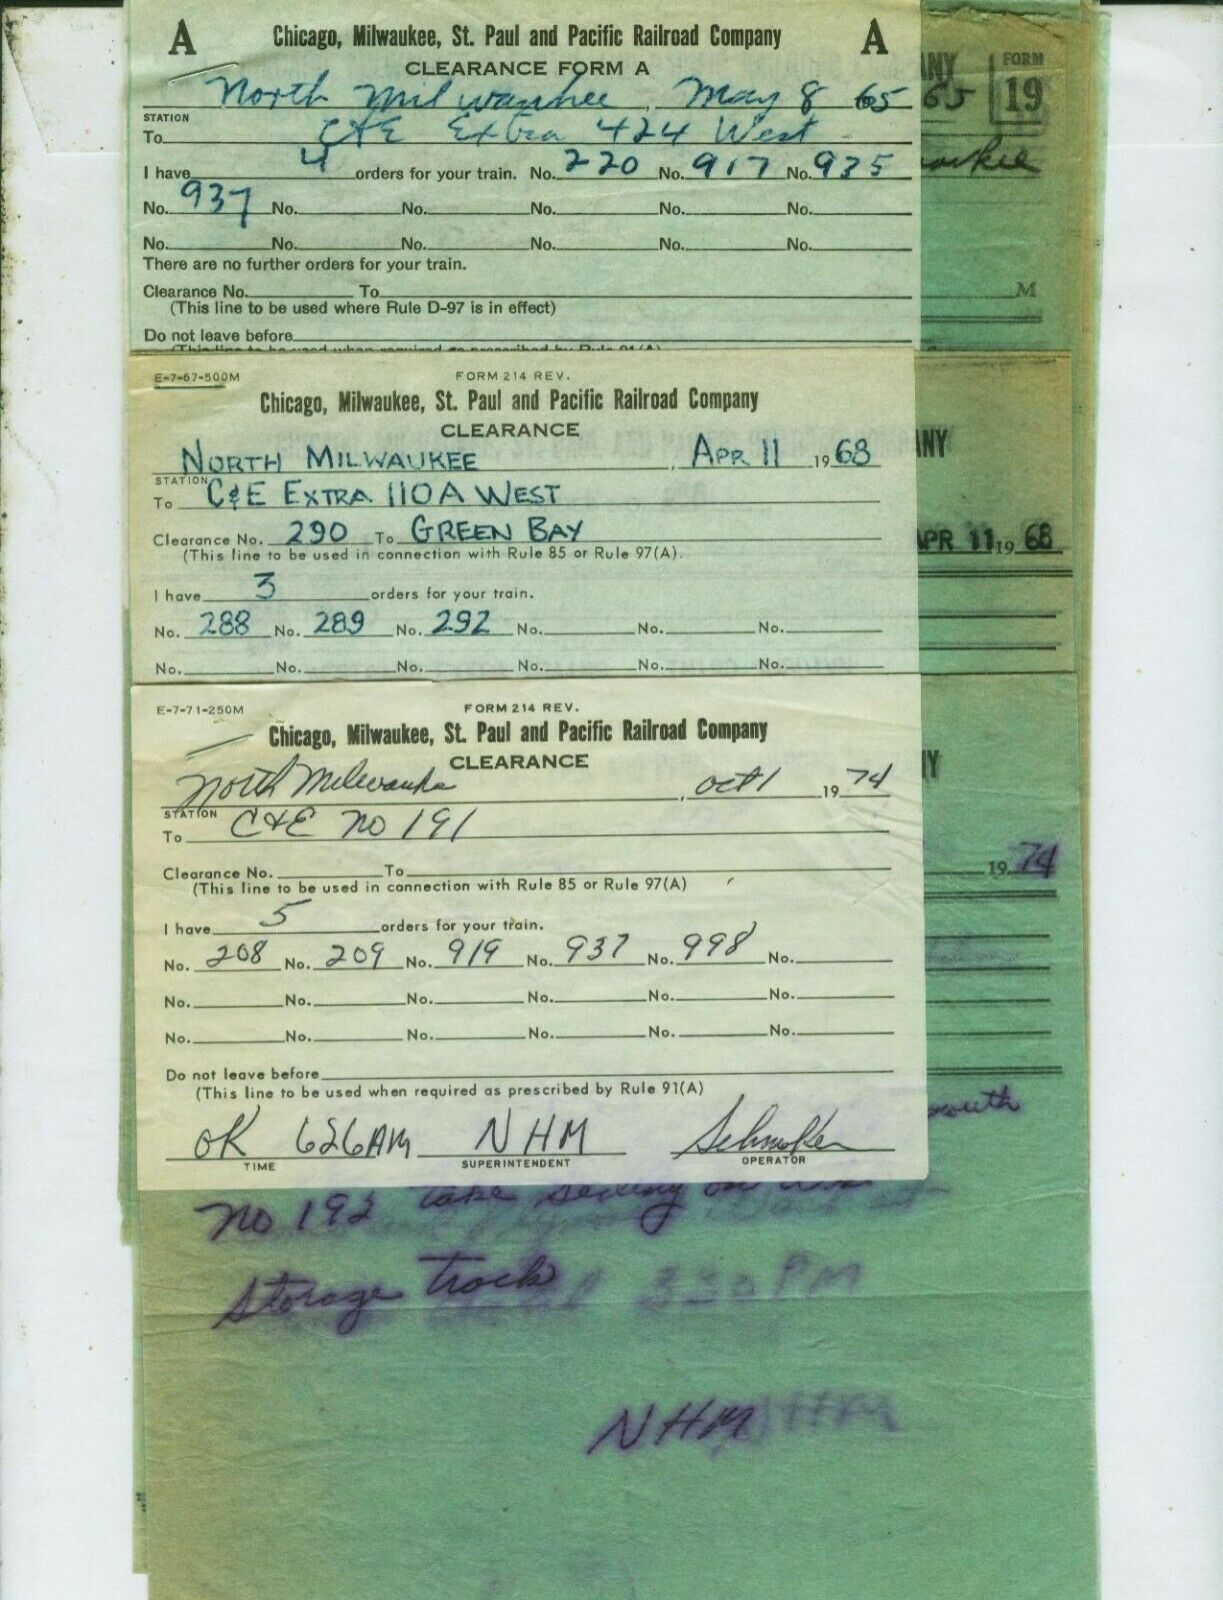 A Chicago, Milwaukee, St. Paul and Pacific Railroad Company A
CLEARANCE FORM A
North Milwaukee, May 8 65
STATION
To C&E Extra 424 West
I have 4 orders for your train. No. 220 No. 917 No. 935
No. 937 No. No. No. No. No.
No. No. No. No. No. No.
There are no further orders for your train.
Clearance No. To
(This line to be used where Rule D-97 is in effect)
Do not leave before
(This line to be used when required as prescribed by Rule 91(A)
ANY FORM
65 19
M
E-7-67-500M FORM 214 REV.
Chicago, Milwaukee, St. Paul and Pacific Railroad Company
CLEARANCE
NORTH MILWAUKEE, APR 11 1968
STATION
To C&E EXTRA 110A WEST
Clearance No. 290 To GREEN BAY
(This line to be used in connection with Rule 85 or Rule 97(A).
I have 3 orders for your train.
No. 288 No. 289 No. 292 No. No. No.
No. No. No. No. No. No.
ANY
APR 11 1968
E-7-71-250M FORM 214 REV.
Chicago, Milwaukee, St. Paul and Pacific Railroad Company
CLEARANCE
North Milwaukee, Oct 1 1974
STATION
To C&E No 191
Clearance No. To
(This line to be used in connection with Rule 85 or Rule 97(A)
I have 5 orders for your train.
No. 208 No. 209 No. 919 No. 937 No. 998 No.
No. No. No. No. No. No.
No. No. No. No. No. No.
Do not leave before
(This line to be used when required as prescribed by Rule 91(A)
OK 626AM NHM Schmoker
TIME SUPERINTENDENT OPERATOR
Y
1974
No 192 take siding on
storage track 330 PM
NHM NHM